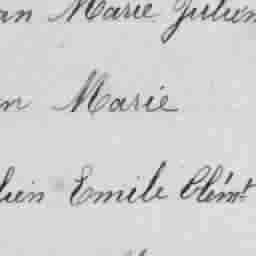 an Marie Julien
n Marie
lien Emile Clémt